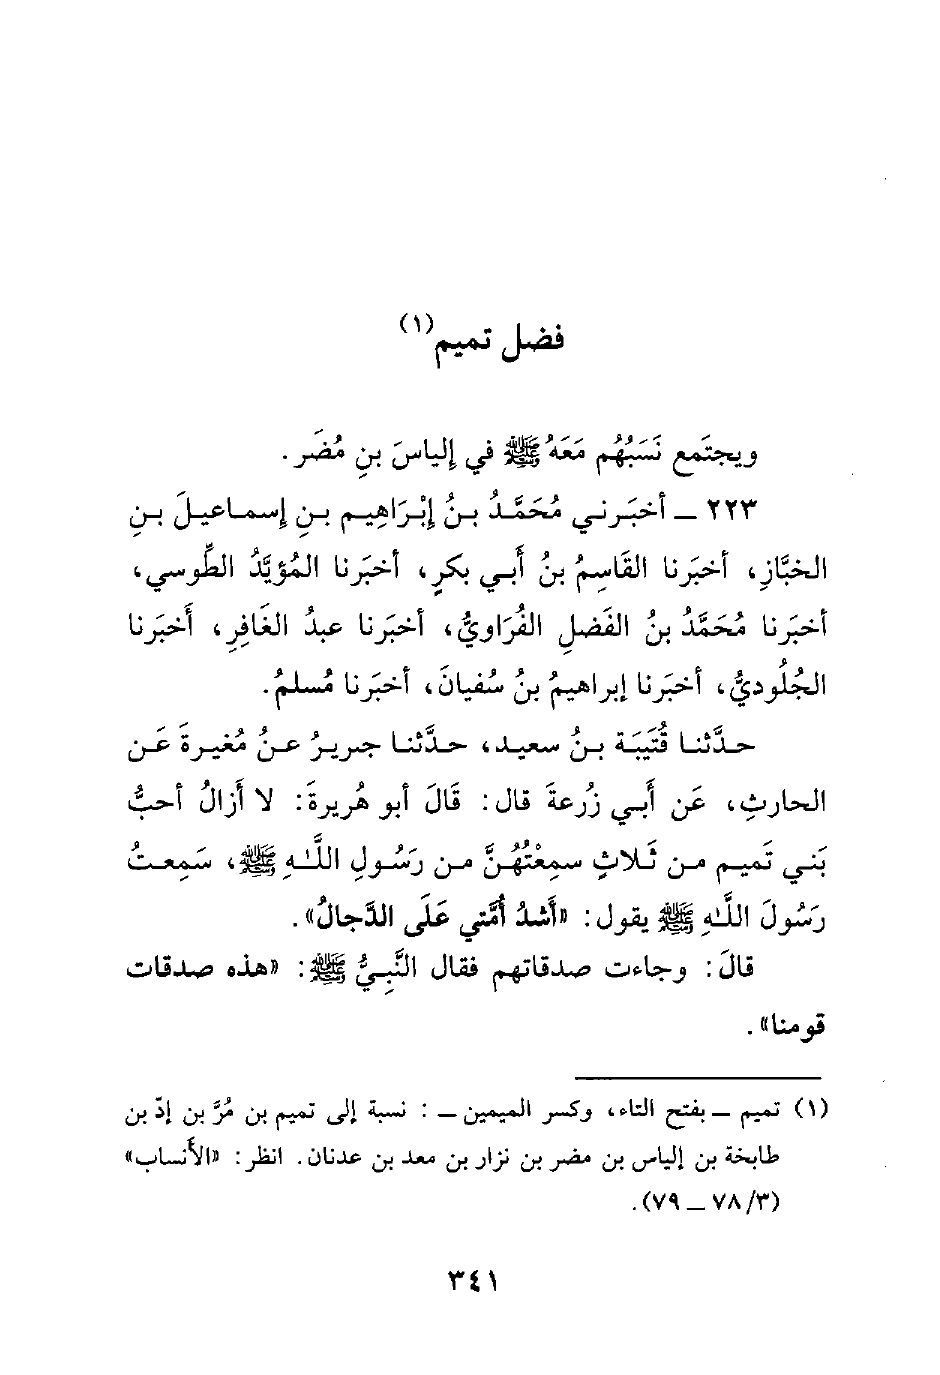 فضل تميم(١)
ويجتمَع نَسَبُهُم مَعَهُ ﷺ في إلياسَ بنِ مُضَر.
٢٢٣ ـ أخبَرني مُحَمَّدُ بنُ إبْرَاهِيم بنِ إسماعيلَ بنِ
الخبَّازِ، أخبَرنا القَاسِمُ بنُ أَبي بكرٍ، أخبَرنا المُؤيَّدُ الطُّوسي،
أخبَرنا مُحَمَّدُ بنُ الفَضلِ الفُرَاويُّ، أخبَرنا عبدُ الغَافِرِ، أَخبَرنا
الجُلُوديُّ، أخبَرنا إبراهيمُ بنُ سُفيانَ، أخبَرنا مُسلمُ.
حدَّثنا قُتَيبَة بنُ سعيد، حدَّثنا جريرُ عنُ مُغيرةَ عَن
الحارثِ، عَن أَبي زُرعةَ قال: قَالَ أبو هُريرةَ: لا أزالُ أحبُّ
بَني تَميم من ثَلاثٍ سمِعْتُهُنَّ من رَسُولِ اللَّهِ ﷺ، سَمِعتُ
رَسُولَ اللَّهِ ﷺ يقول: «أَشدُ أُمَّتي عَلَى الدَّجالُ».
قالَ: وجاءت صدقاتهم فقال النَّبِيُّ ﷺ: «هذه صدقات
قومنا».
(١) تميم ـ بفتح التاء، وكسر الميمين ـ : نسبة إلى تميم بن مُرَّ بن إدّ بن
طابخة بن إلياس بن مضر بن نزار بن معد بن عدنان. انظر: «الأنساب»
(٧٨/٣ ـ ٧٩).
٣٤١